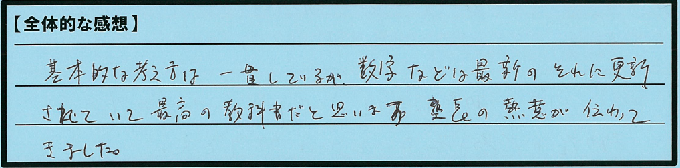 【全体的な感想】
基本的な考え方は一貫しているが、数字などは最新のそれに更新
されていて最高の教科書だと思います 塾長の熱意が伝わって
きました。